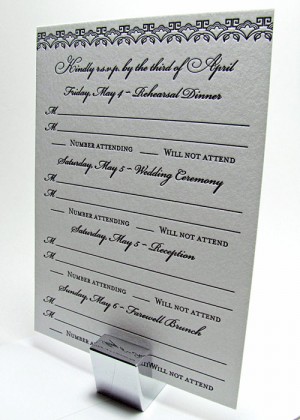 Kindly r.s.v.p. by the third of April
Friday, May 4 ~ Rehearsal Dinner
M
M
Number attending Will not attend
Saturday, May 5 ~ Wedding Ceremony
M
M
Number attending Will not attend
Saturday, May 5 ~ Reception
M
M
Number attending Will not attend
Sunday, May 6 ~ Farewell Brunch
M
M
Number attending Will not attend